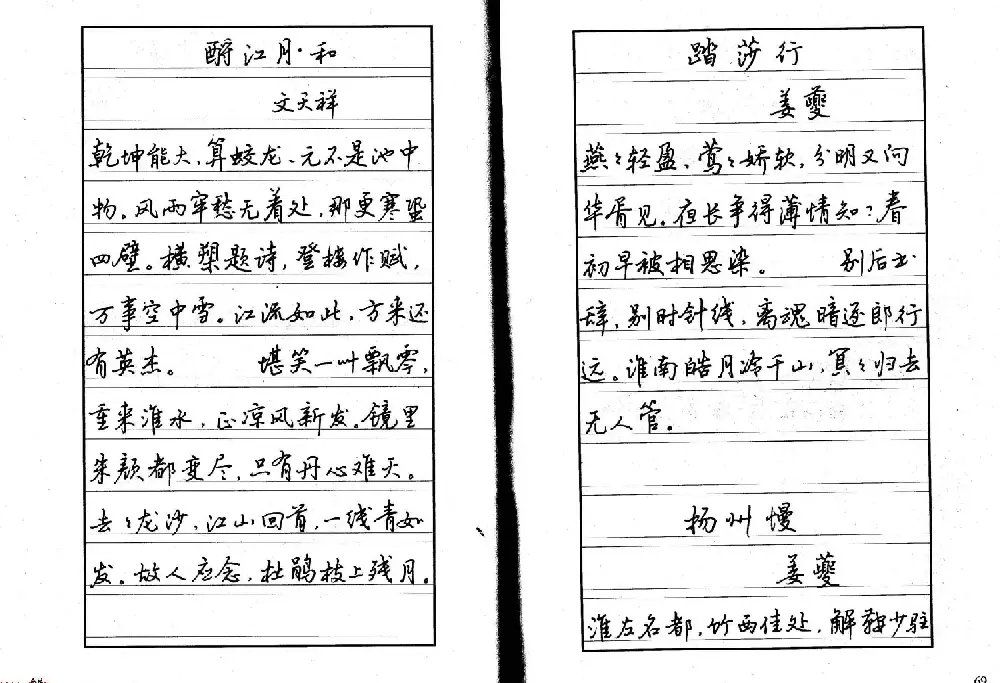 酹江月·和
文天祥
乾坤能大,算蛟龙、元不是池中
物。风雨牢愁无着处,那更寒蛩
四壁。横槊题诗,登楼作赋,
万事空中雪。江流如此,方来还
有英杰。 堪笑一叶飘零,
重来淮水,正凉风新发。镜里
朱颜都变尽,只有丹心难灭。
去々龙沙,江山回首,一线青如
发。故人应念,杜鹃枝上残月。
踏莎行
姜夔
燕々轻盈,莺々娇软,分明又向
华胥见。夜长争得薄情知?春
初早被相思染。 别后书
辞,别时针线,离魂暗逐郎行
远。淮南皓月冷千山,冥々归去
无人管。
扬州慢
姜夔
淮左名都,竹西佳处,解鞍少驻
69